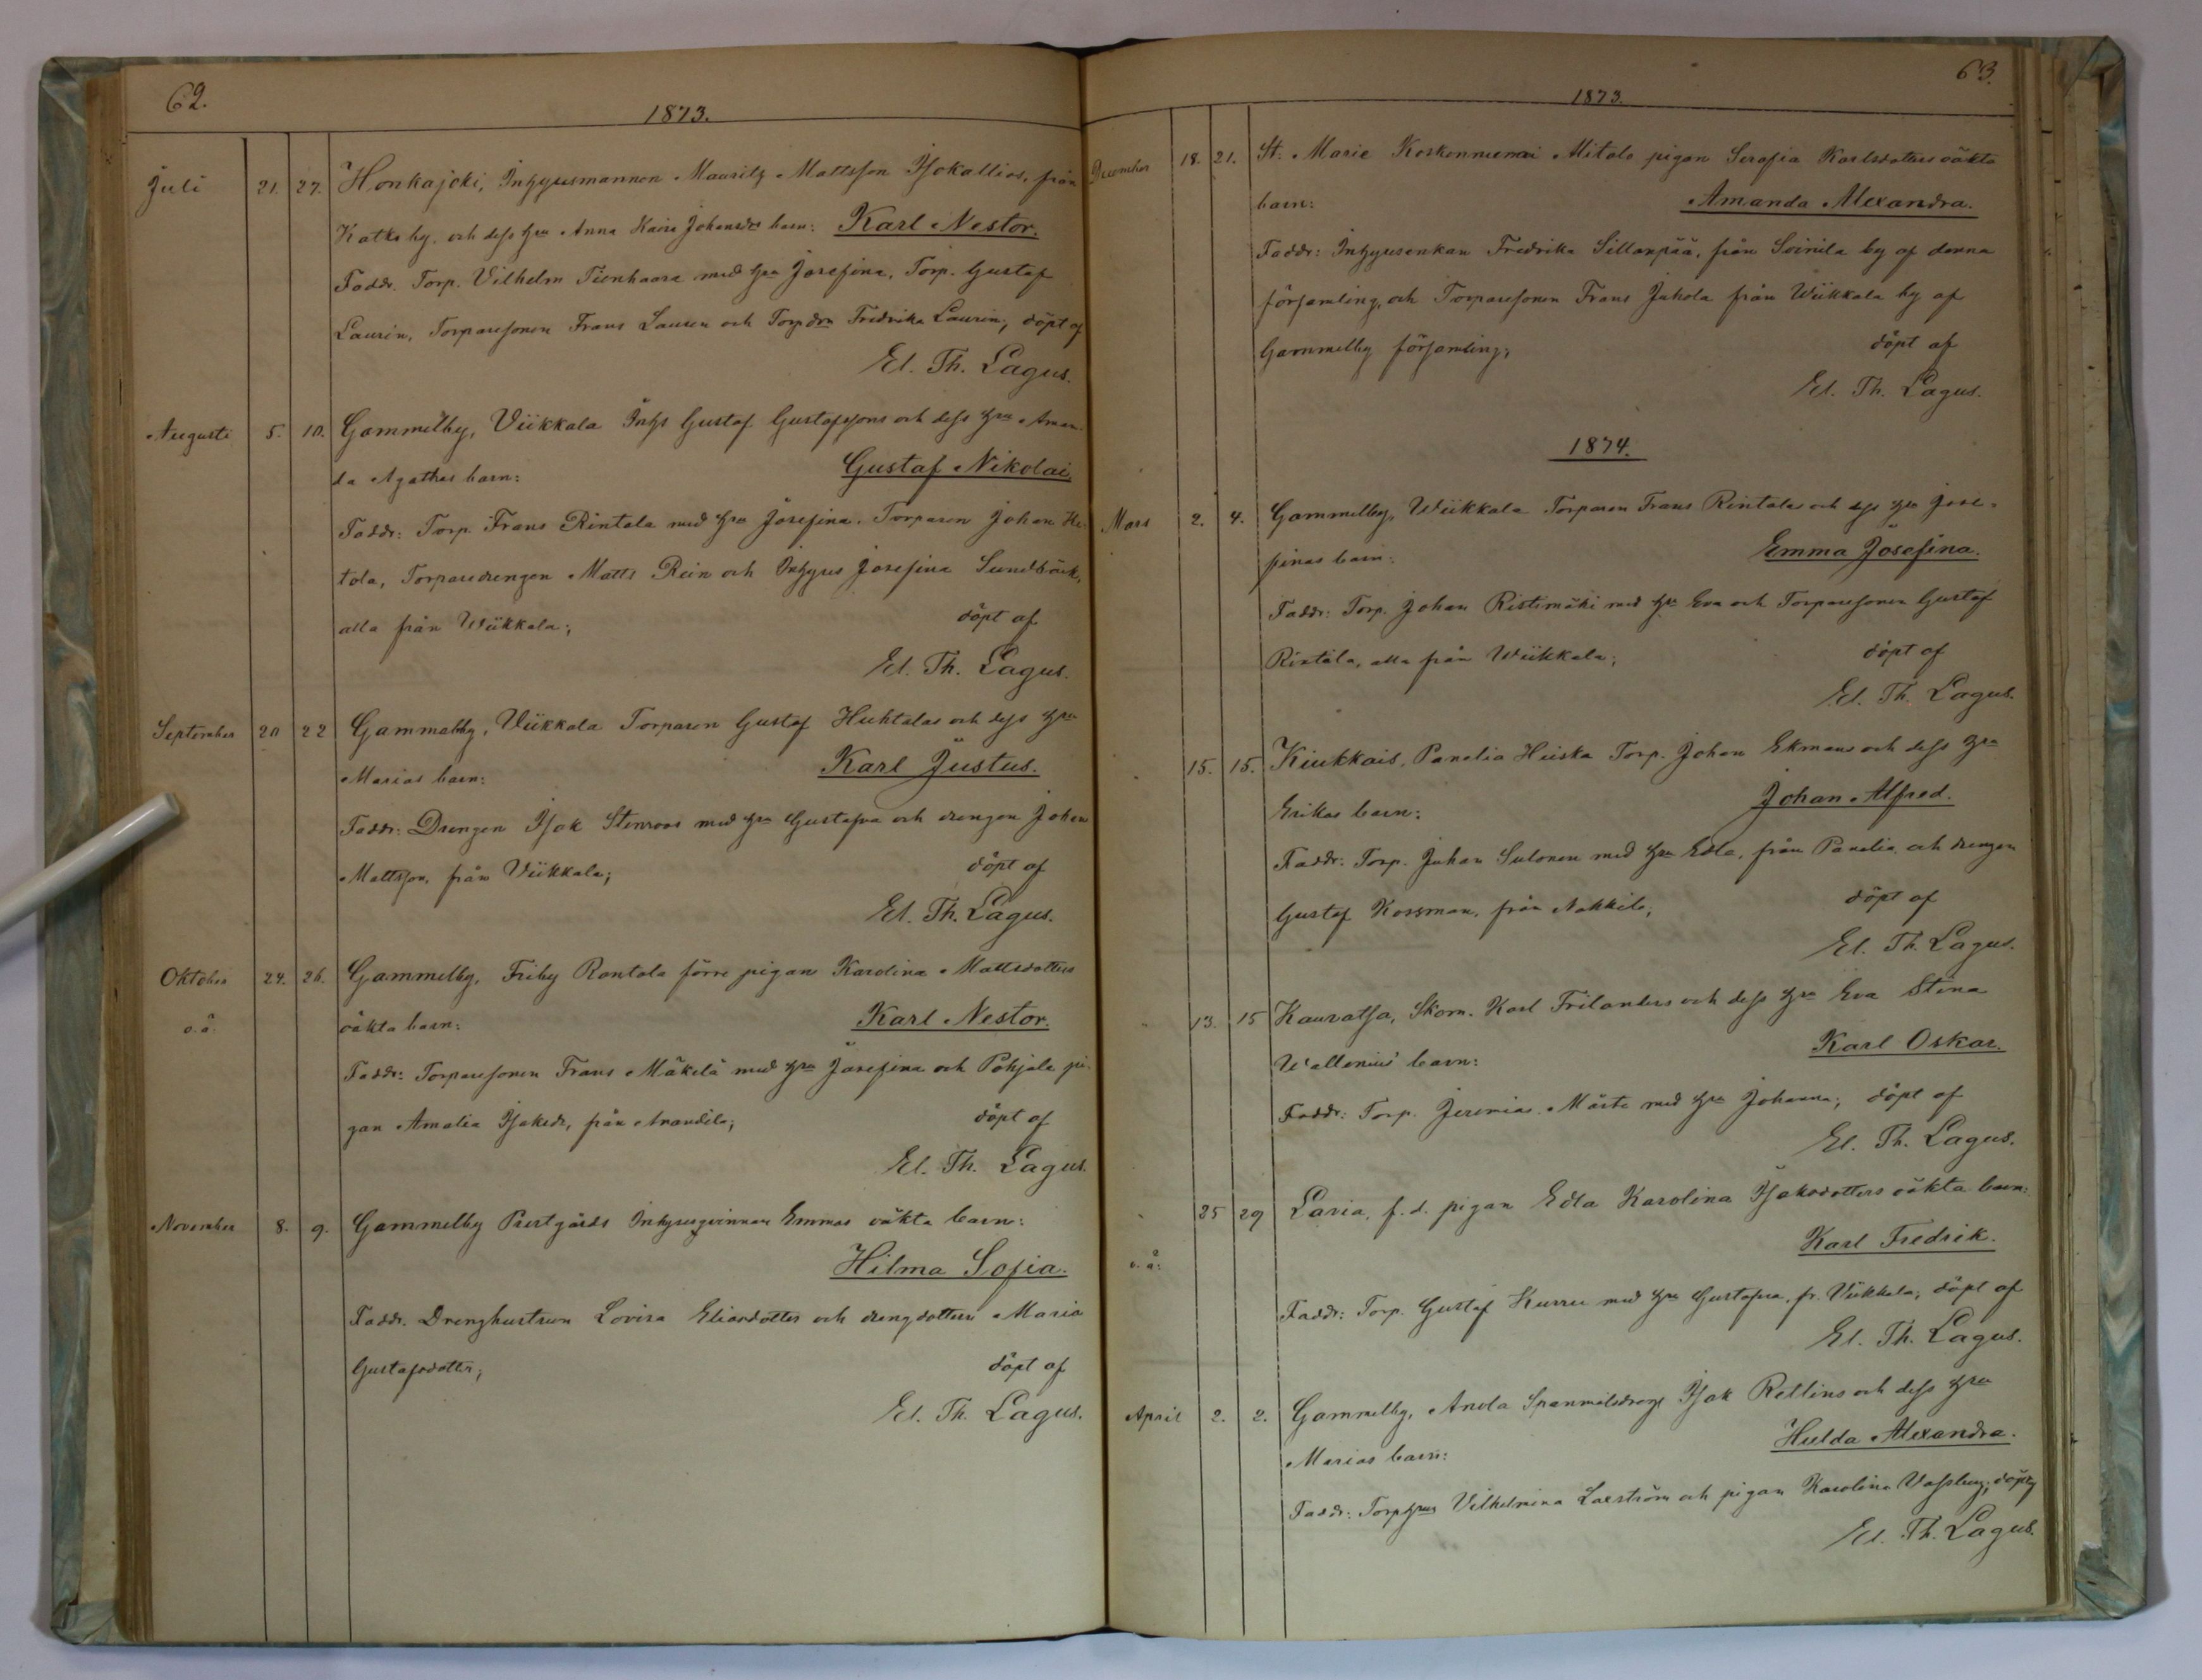 62.
1873.
Juli 21. 27. Honkajoki, Inhysesmannen Mauritz Mattsson Isokallios, från
Katko by, och dess hru Anna Kaisa Johansdrs barn: Karl Nestor.
Faddr. Torp. Vilhelm Tienhaara med hru Josefina, Torp. Gustaf
Laurin, Torparesonen Frans Lauren och Torpdrn Fredrika Laurin; döpt af
El. Th. Lagus.
Augusti 5. 10. Gammelby, Viikkala Inhs Gustaf Gustafssons och dess hru Aman-
da Agathas barn: Gustaf Nikolai.
Faddr: Torp. Frans Rintala med hru Josefina. Torparen Johan
tola, Torparedrengen Matts Rein och Inhyses Josefina Sundbäck,
alla från Wiikkala; döpt af
El. Th. Lagus.
September 20 22 Gammalby, Viikkala Torparen Gustaf Huhtalas och dess hru
Marias barn: Karl Justus.
Faddr: Drengen Isak Stenroos med hru Gustafva och drengen Johan
Mattsson, från Viikkala; döpt af
El. Th. Lagus.
Oktober 24. 26. Gammelby, Friby Rantala förre pigan Karolina Mattsdotters
o.ä. oäkta barn: Karl Nestor.
Faddr: Torparesonen Frans Mäkelä med hru Josefina och Pohjala pi-
gan Amalia Isaksdr, från Anandila; döpt af
El. Th. Lagus.
November 8. 9. Gammelby Prestgårds Inhysesqvinnan Emmas oäkta barn:
Hilma Sofia.
Faddr. Drenghustrun Lovisa Eliasdotter och drengdottern Maria
Gustafsdotter; döpt af
El. Th. Lagus.
63.
1873.
December 18. 21. St. Marie Koskenniemi Mitala pigan Serafia Karlsdotters oäkta
barn: Amanda Alexandra.
Faddr: Inhysesenkan Fredrika Sillanpää, från Soinila by af denna
församling, och Torparesonen Frans Juhola från Wiikkala by af
Gammelby församling; döpt af
El. Th. Lagus.
1874.
Mars 2. 4. Gammelby, Wiikkala Torparen Frans Rintalas och dess hru Jose-
finas barn: Emma Josefina.
Faddr: Torp. Johan Ristimäki med hru Eva och Torparesonen Gustaf
Rintala, alla från Wiikkala; döpt af
El. Th. Lagus.
15. 15. Kiukkais, Panelia Heiska Torp. Johan Ekmans och dess hru
Erikas barn: Johan Alfred.
Faddr: Torp. Juhan Sulonen med hru Edla, från Panelia, och drengen
Gustaf Kossman, från Nakkila; döpt af
El. Th. Lagus.
13. 15 Kauvatsa, Skom. Karl Frilanders och dess hru Eva Stina
Wallenius' barn: Karl Oskar.
Faddr: Torp. Jeremias Märta med hru Johanna; döpt af
El. Th. Lagus.
25 29 Lavia, f.d. pigan Edla Karolina Isaksdotters oäkta barn:
o.ä: Karl Fredrik.
Faddr: Torp. Gustaf Kurru med hru Gustafva, fr. Viikkala; döpt af
El. Th. Lagus.
April 2. 2. Gammelby, Anola Spanmålsdrng Isak Rellins och dess hru
Marias barn: Hulda Alexandra.
Faddr: Torphrun Vilhelmina Laxström och pigan Karolina Vassberg; döpt af
El. Th. Lagus.